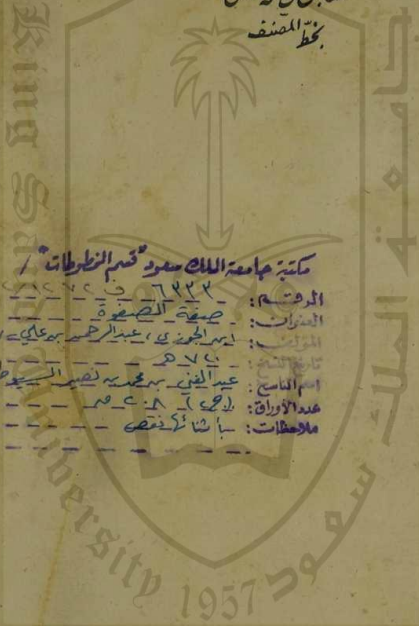 بخط المصنف
مكتبة جامعة الملك سعود "قسم المخطوطات"
الرقم: ٦٣٣٣
العنوان: صفة الصفوة
المؤلف: ابن الجوزي، عبدالرحمن بن علي
تاريخ النسخ: ٧٢٠ هـ
اسم الناسخ: عبدالغني بن محمد بن نصير
عدد الأوراق: ٢٠٨
ملاحظات: بأثنائها نقص
King Saud University 1957
جامعة الملك سعود